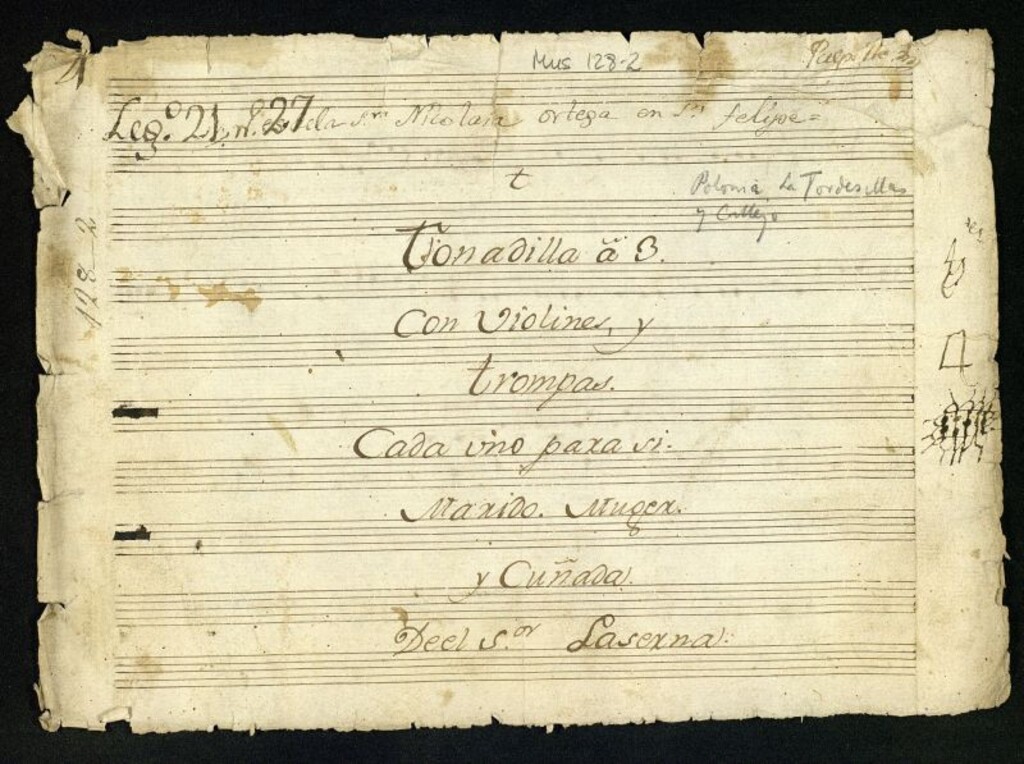 Mus 128-2
Leg.º 21, n.º 27 dela S.ra Nicolasa ortega en S.n felipe =
t
Polonia, La Tordesillas
y Callejo
128-2
Tonadilla â 3.
Con Violines, y
trompas.
Cada vno para si.
Marido. Muger.
y Cuñada.
Deel S.or Laserna.